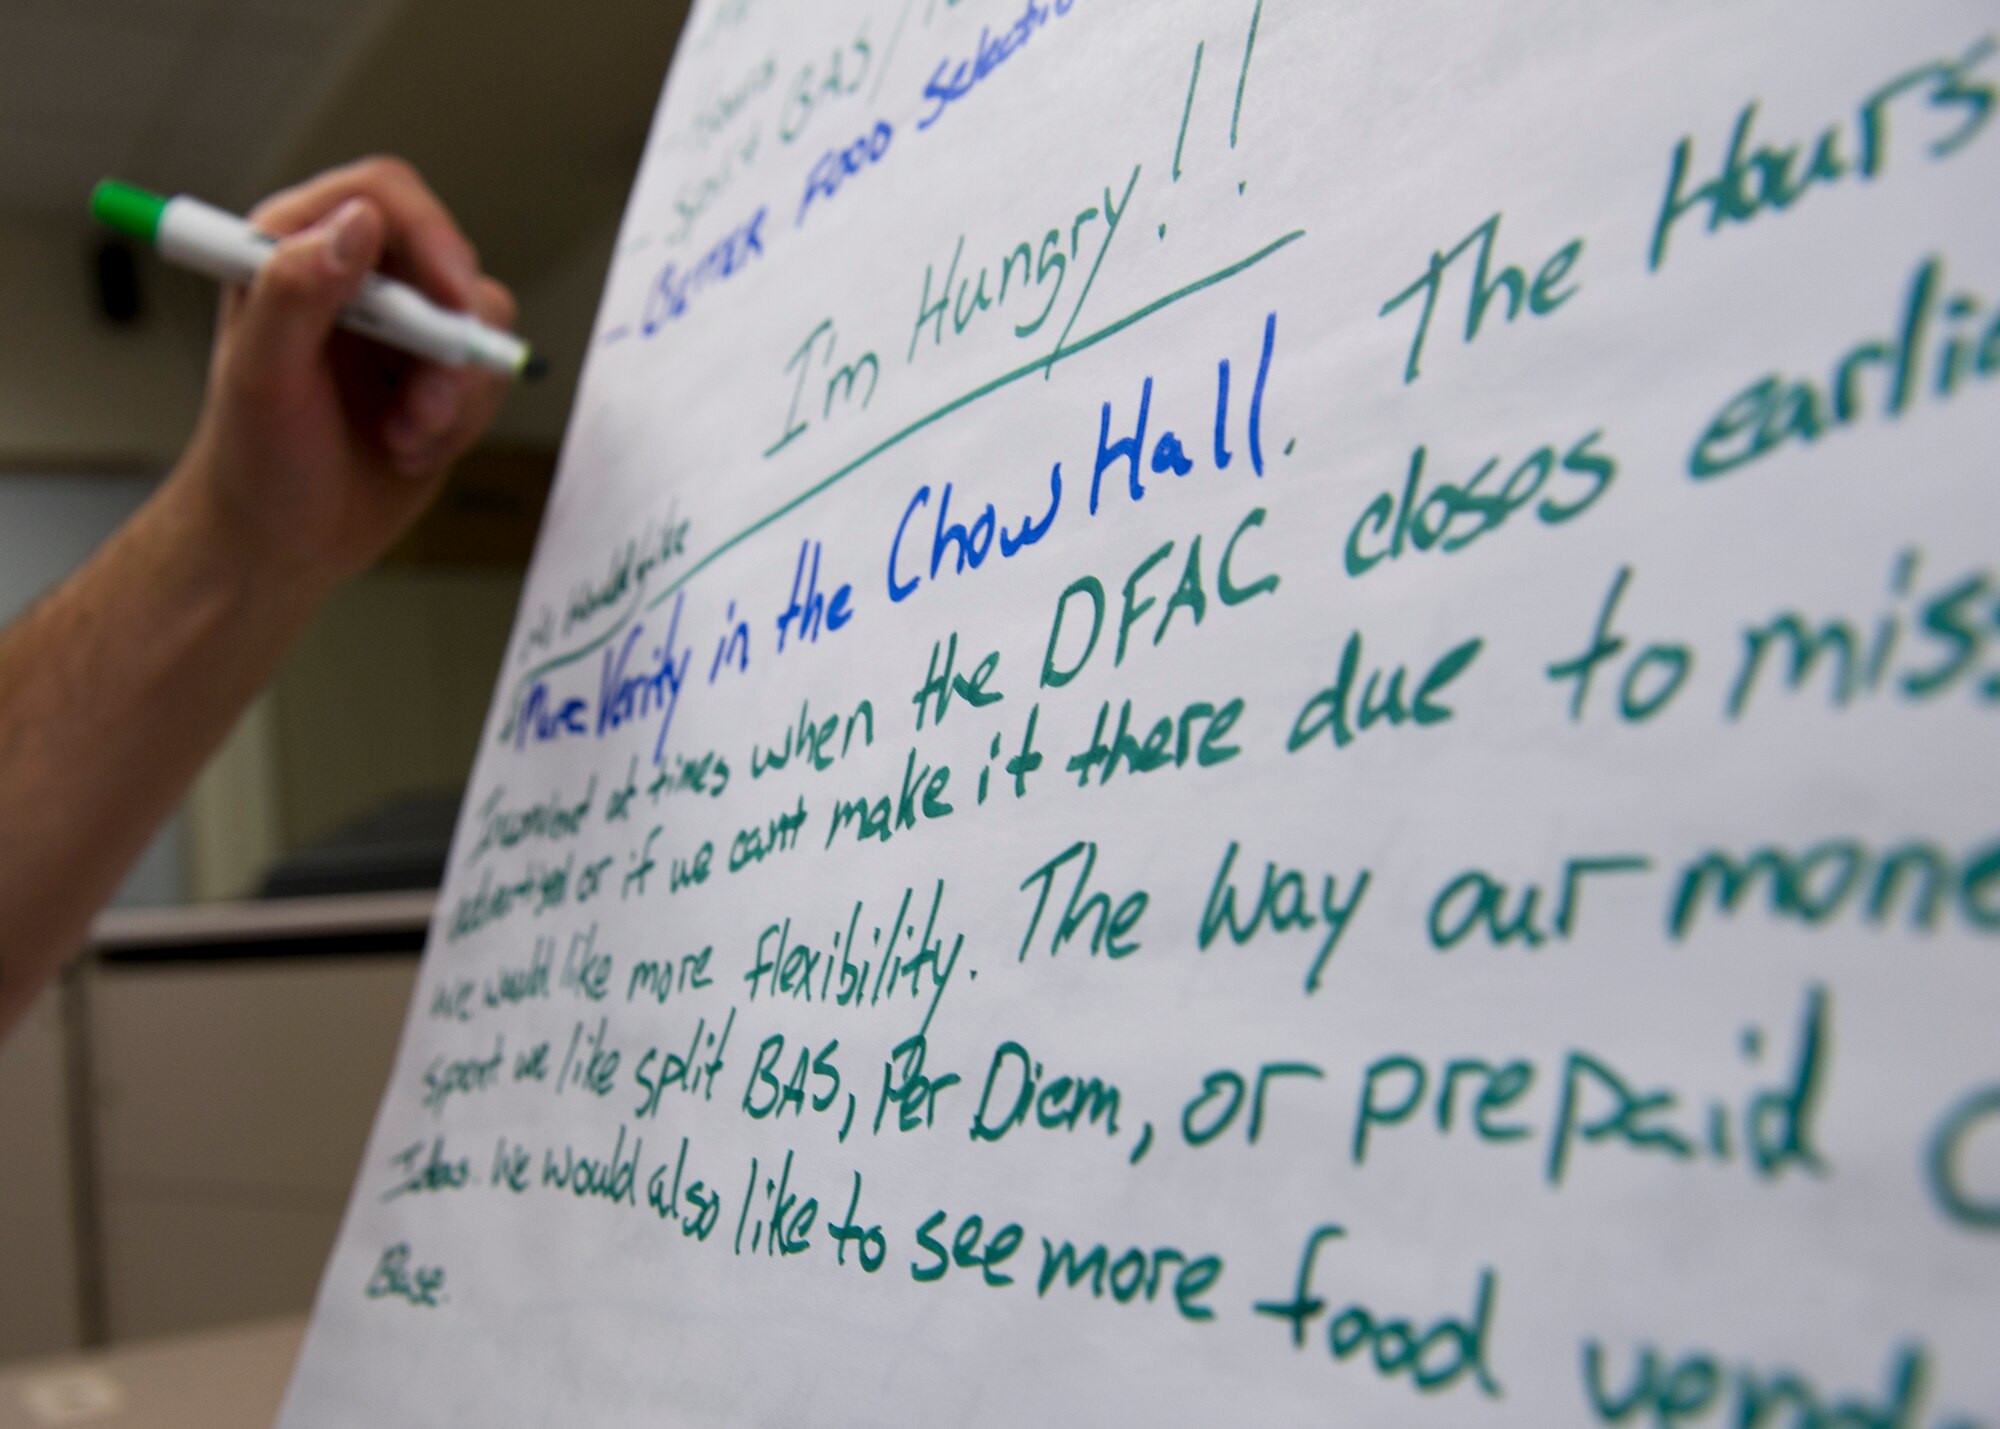 - Hours
- Split BAS/
- BETTER FOOD Selectio
I'm Hungry!!
would like
More Varity in the Chow Hall. The Hours
at times when the DFAC closes earlie
advertised or if we cant make it there due to miss
we would like more flexibility. The way our mone
spent we like split BAS, Per Diem, or prepaid
Ideas. We would also like to see more food vend
Base.